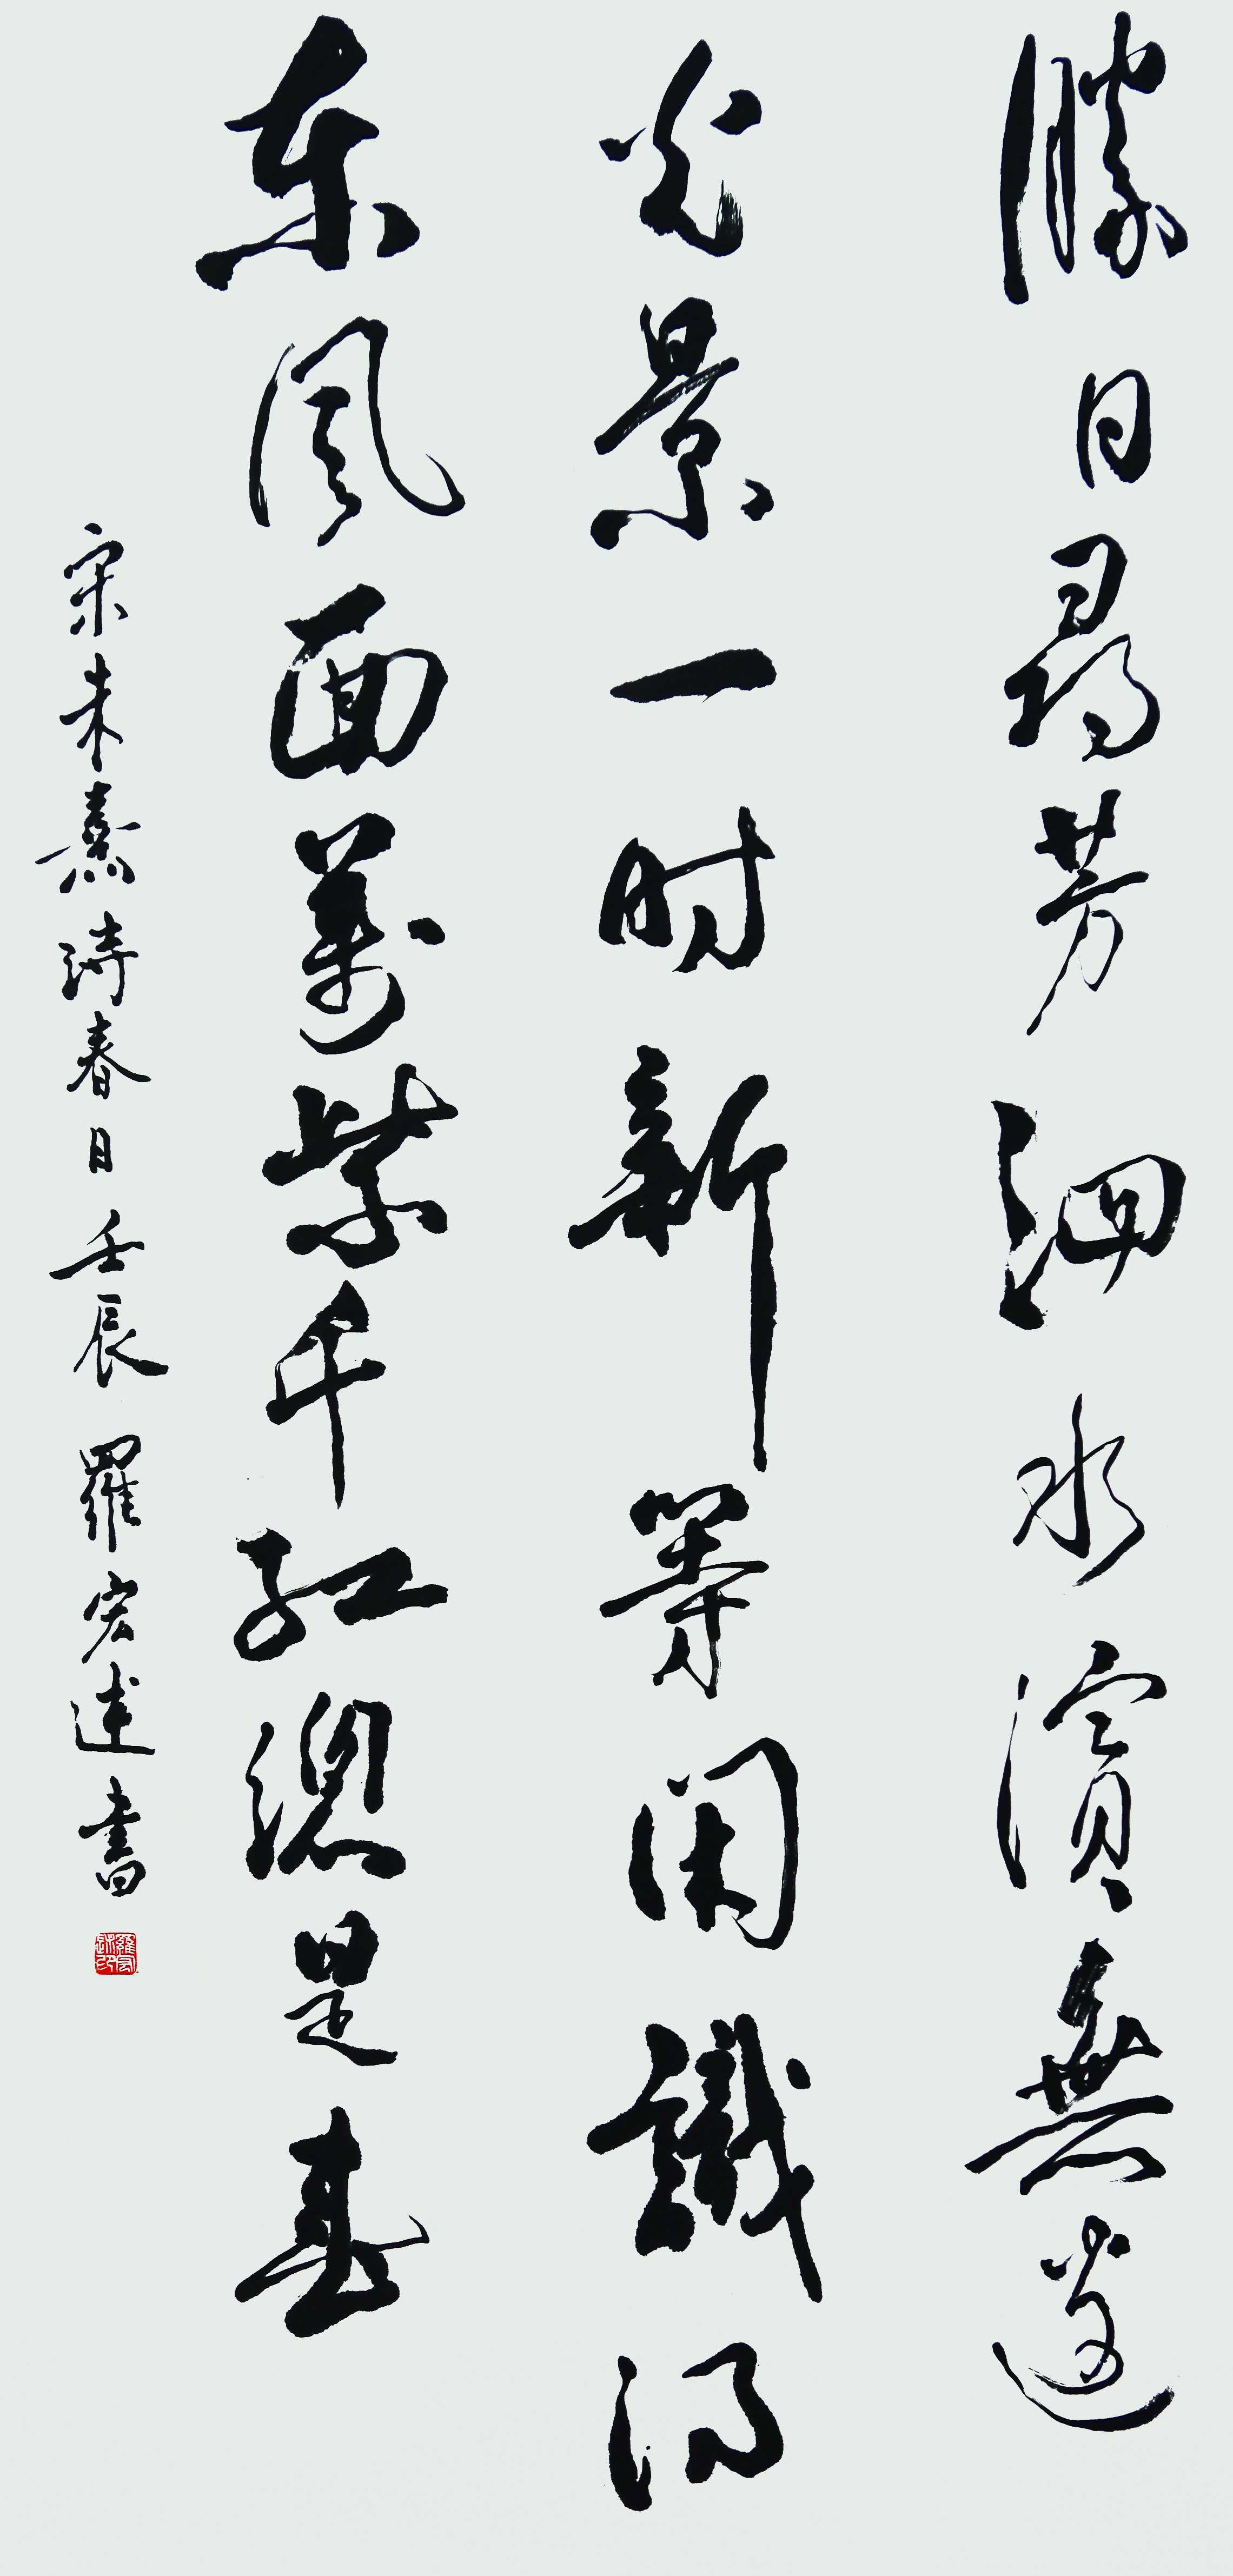 勝日尋芳泗水濱無邊
光景一时新等閑識得
东風面萬紫千红總是春
宋朱熹诗春日 壬辰 羅宏書